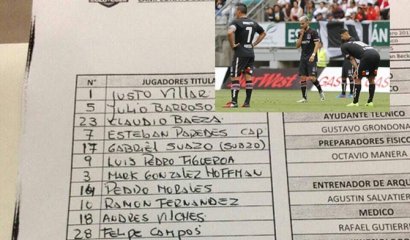 N° JUGADORES TITULA
1 JUSTO VILLAR
5 JULIO BARROSO
23 CLAUDIO BAEZA
7 ESTEBAN PAREDES CAP
17 GABRIEL SUAZO (SUAZO)
9 LUIS PEDRO FIGUEROA
3 MARK GONZALEZ HOFFMAN
14 PEDRO MORALES
10 RAMON FERNANDEZ
18 ANDRES VILCHES
28 FELIPE CAMPOS
AYUDANTE TECNICO
GUSTAVO GRONDONA
PREPARADORES FISICO
OCTAVIO MANERA
ENTRENADOR DE ARQU
AGUSTIN SALVATIER
MEDICO
RAFAEL GUTIERR
7